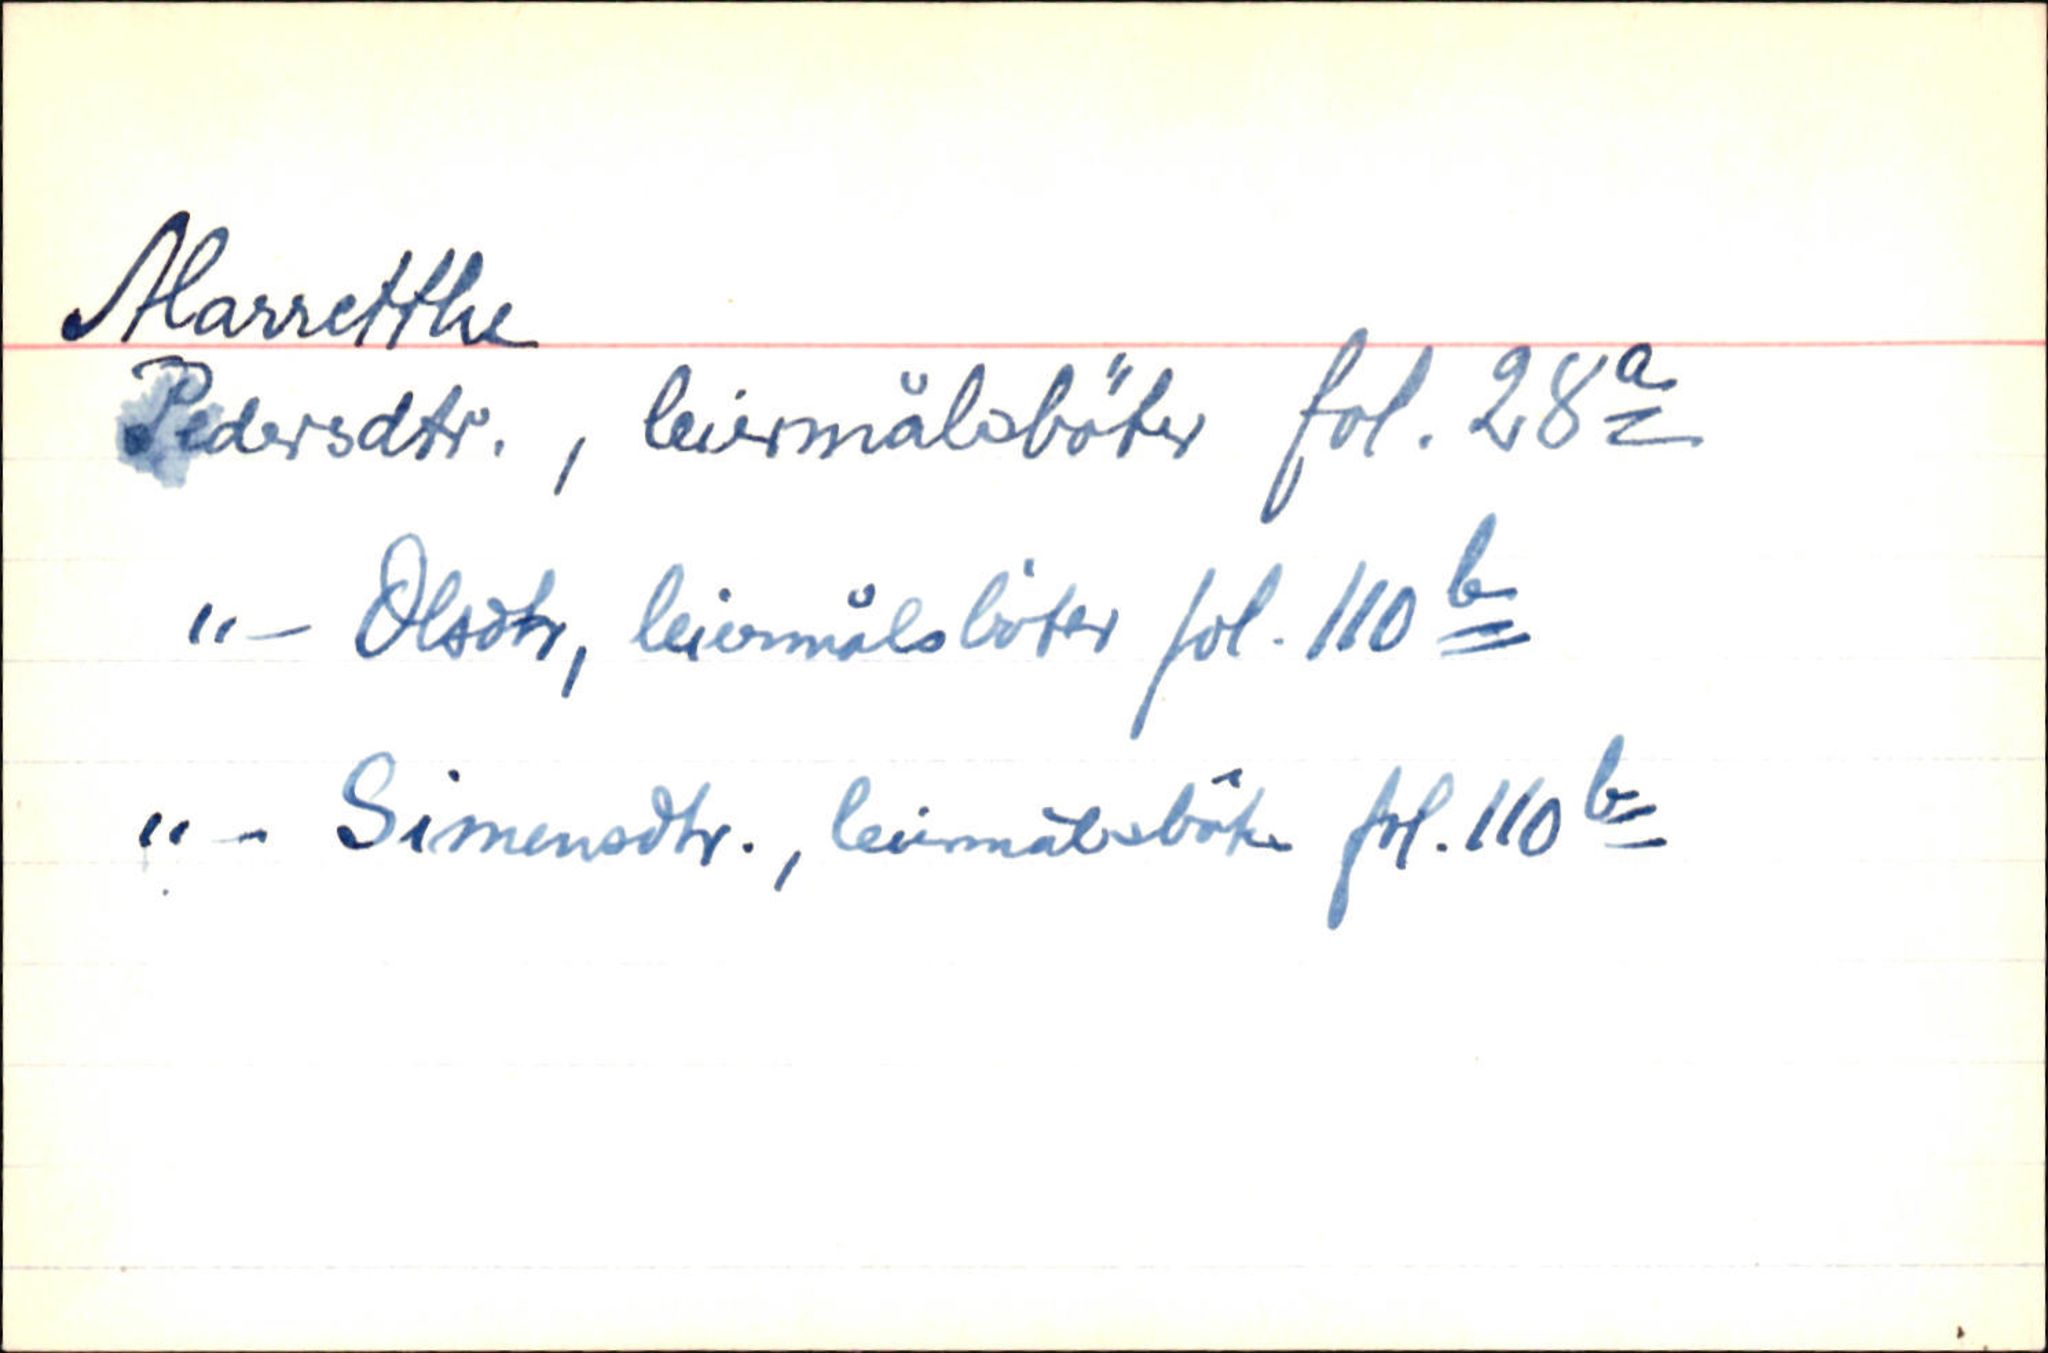 Marretthe
Pedersdtr., leiermålsböter fol. 28a
"- Olsdtr, leiermålsböter fol. 110b
"- Simensdtr., leiermålsböter fol. 110b